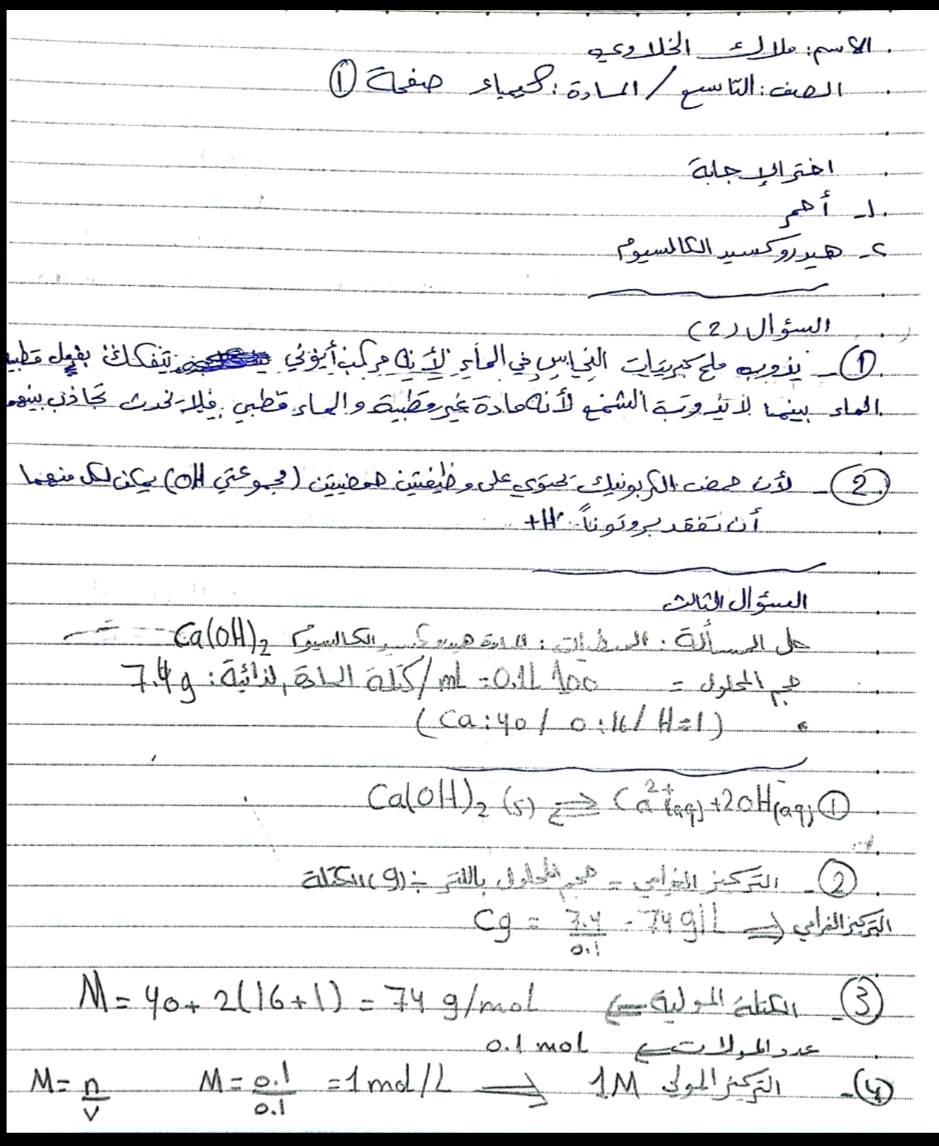 الاسم: ملاك الخلاوي
الصف: التاسع / المادة: كيمياء صفحة ①
اختر الإجابة
1- أحمر
2- هيدروكسيد الكالسيوم
السؤال (2)
①- يذوب ملح كبريتات النحاس في الماء لأنه مركب أيوني يتفكك بفعل قطبية
الماء بينما لا يذوب الشمع لأنه مادة غير قطبية والماء قطبي فلا يحدث تجاذب بينهم
②- لأن حمض الكربونيك يحتوي على وظيفتين حمضيتين (مجموعتي OH) يمكن لكل منهما
أن تفقد بروتوناً H+
السؤال الثالث
حل المسألة: المعطيات: المادة هيدروكسيد الكالسيوم Ca(OH)2
حجم المحلول = 100 ml = 0.1L / كتلة المادة الذائبة: 7.4g
(Ca:40 / O:16 / H=1)
① Ca(OH)2 (s) ⇌ Ca2+(aq) + 2OH-(aq)
②- التركيز الغرامي = حجم المحلول باللتر ÷ (g) الكتلة
التركيز الغرامي ⇒ Cg = 7.4/0.1 = 74 g/L
③- الكتلة المولية ⇐ M = 40 + 2(16+1) = 74 g/mol
عدد المولات ⇐ 0.1 mol
④- التركيز المولي 1M ⇐ M = n/V M = 0.1/0.1 = 1 mol/L